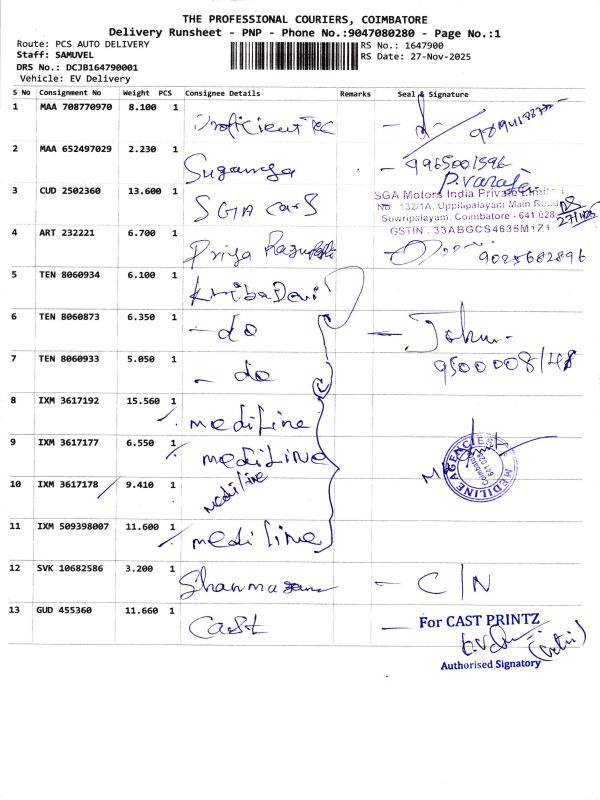 THE PROFESSIONAL COURIERS, COIMBATORE
Delivery Runsheet - PNP - Phone No.:9047080280 - Page No.:1
Route: PCS AUTO DELIVERY
RS No.: 1647900
Staff: SAMUVEL
RS Date: 27-Nov-2025
DRS No.: DCJB164790001
Vehicle: EV Delivery
S No Consignment No Weight PCS Consignee Details Remarks Seal & Signature
1 MAA 708770970 8.100 1
2 MAA 652497029 2.230 1 - 9965001596
3 CUD 2502360 13.600 1 SGA cars
SGA Motors India Private Limited
No. 132/1A, Uppilipalayam Main Road
Sowripalayam, Coimbatore - 641 028
GSTIN : 33ABGCS4635M1Z1
4 ART 232221 6.700 1 Priya 9025682896
5 TEN 8060934 6.100 1
6 TEN 8060873 6.350 1 - do - John
7 TEN 8060933 5.050 1 - do 9500008148
8 IXM 3617192 15.560 1 mediline
9 IXM 3617177 6.550 1 mediLine
MEDILINE AGENCIES
Coimbatore
641 028
10 IXM 3617178 9.410 1 mediline
11 IXM 509398007 11.600 1 mediline
12 SVK 10682586 3.200 1 - C/N
13 GUD 455360 11.660 1 Cast
For CAST PRINTZ
Authorised Signatory